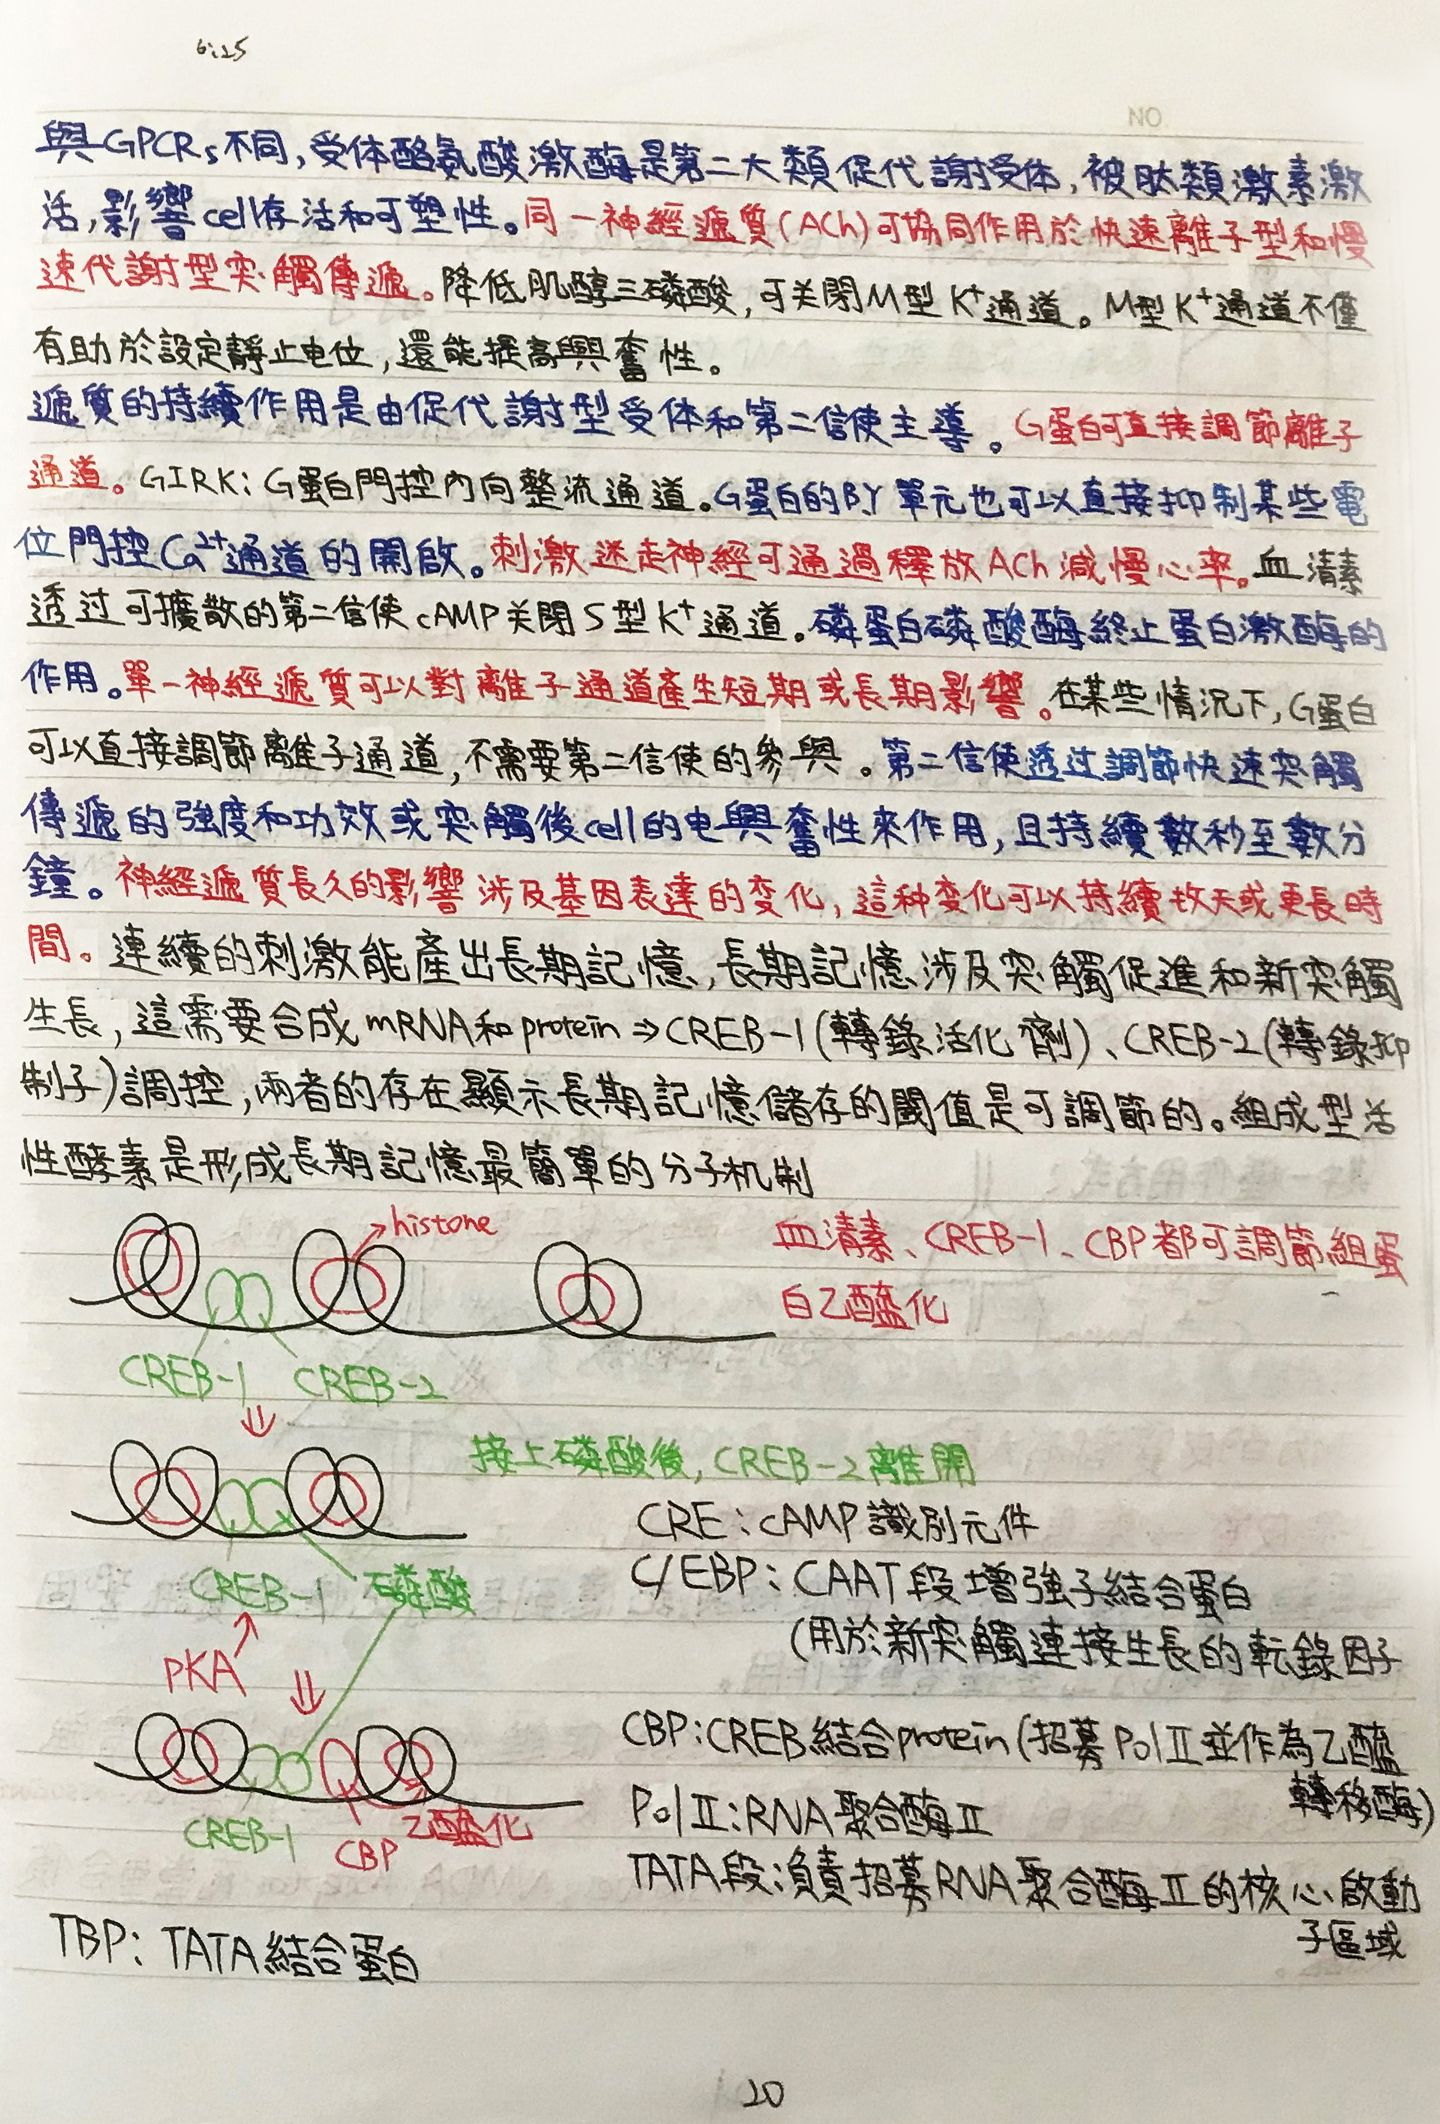 6:25
與GPCRs不同,受体酪氨酸激酶是第二大類促代謝受体,被肽類激素激
活,影響cell存活和可塑性。同一神經遞質(ACh)可協同作用於快速離子型和慢
速代謝型突觸傳遞。降低肌醇三磷酸,可关閉M型K⁺通道。M型K⁺通道不僅
有助於設定靜止电位,還能提高興奮性。
遞質的持續作用是由促代謝型受体和第二信使主導。G蛋白可直接調節離子
通道。GIRK:G蛋白門控內向整流通道。G蛋白的βγ單元也可以直接抑制某些電
位門控Ca²⁺通道的開啟。刺激迷走神經可通過釋放ACh減慢心率。血清素
透过可擴散的第二信使cAMP关閉S型K⁺通道。磷蛋白磷酸酶終止蛋白激酶的
作用。單一神經遞質可以對離子通道產生短期或長期影響。在某些情況下,G蛋白
可以直接調節離子通道,不需要第二信使的參與。第二信使透过調節快速突觸
傳遞的強度和功效或突觸後cell的电興奮性來作用,且持續數秒至數分
鐘。神經遞質長久的影響涉及基因表達的变化,這种变化可以持續数天或更長時
間。連續的刺激能產出長期記憶,長期記憶涉及突觸促進和新突觸
生長,這需要合成mRNA和protein⇒CREB-1(轉錄活化劑)、CREB-2(轉錄抑
制子)調控,兩者的存在顯示長期記憶儲存的閾值是可調節的。組成型活
性酵素是形成長期記憶最簡單的分子机制
histone
血清素、CREB-1、CBP都可調節組蛋
白乙醯化
CREB-1 CREB-2
⇓
接上磷酸後,CREB-2離開
CRE:cAMP識別元件
C/EBP:CAAT段增強子結合蛋白
CREB-1 磷酸
(用於新突觸連接生長的転錄因子
PKA ⇓
CBP:CREB結合protein(招募Pol II並作為乙醯
轉移酶)
Pol II:RNA聚合酶II
CREB-1 CBP 乙醯化
TATA段:負責招募RNA聚合酶II的核心啟動
子區域
TBP:TATA結合蛋白
20